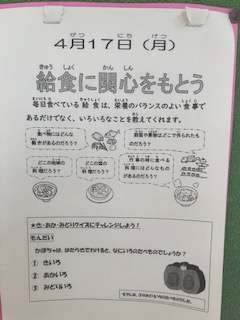 4月17日（月）
給食に関心をもとう
毎日食べている給食は、栄養のバランスのよい食事
であるだけでなく、いろいろなことを教えてくれます。
食べ物にはどんな
働きがあるのだろう？
野菜や果物はどこで作られたも
のだろう？
どこの地域の
料理だろう？
どこの国の
料理だろう？
行事の時に食べる
料理にはどんなも
のがあるのだろう？
★き・あか・みどりクイズにチャレンジしよう！
もんだい
かぼちゃは、はたらきでわけると、なにいろのたべものでしょうか？
① きいろ
② あかいろ
③ みどりいろ